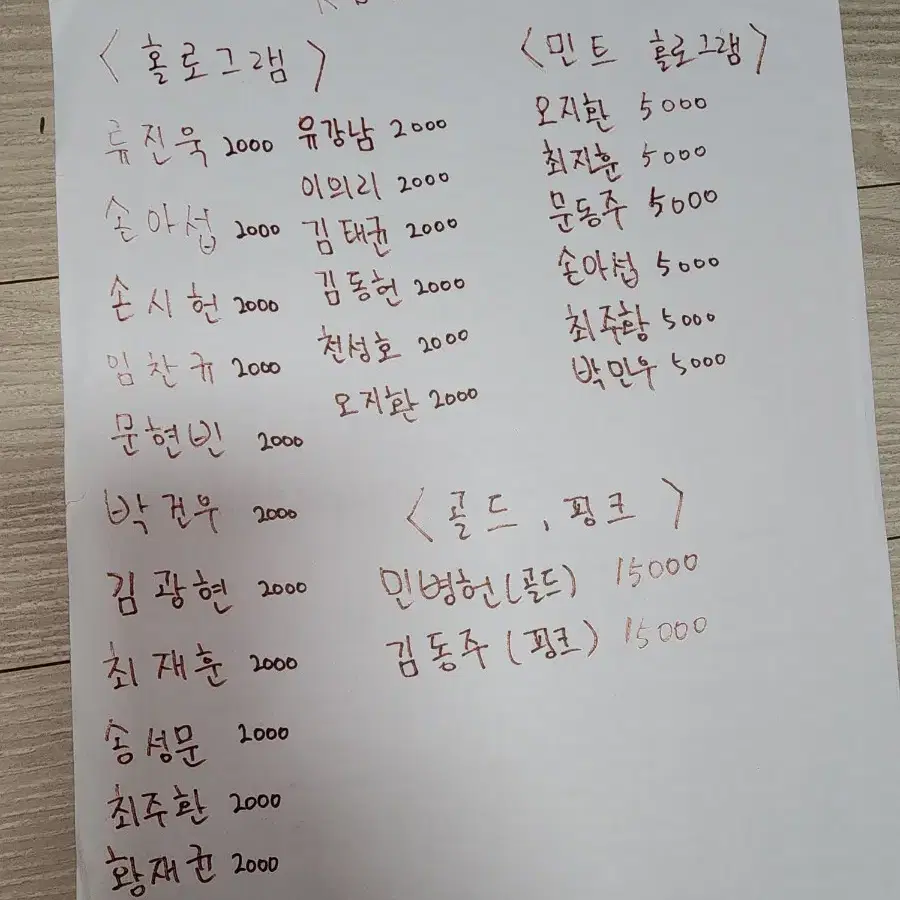 < 홀로그램 >
류진욱 2000
손아섭 2000
손시헌 2000
임찬규 2000
문현빈 2000
박건우 2000
김광현 2000
최재훈 2000
송성문 2000
최주환 2000
황재균 2000
유강남 2000
이의리 2000
김태균 2000
김동헌 2000
천성호 2000
오지환 2000
<민트 홀로그램>
오지환 5000
최지훈 5000
문동주 5000
손아섭 5000
최주환 5000
박민우 5000
< 골드, 핑크 >
민병헌(골드) 15000
김동주(핑크) 15000